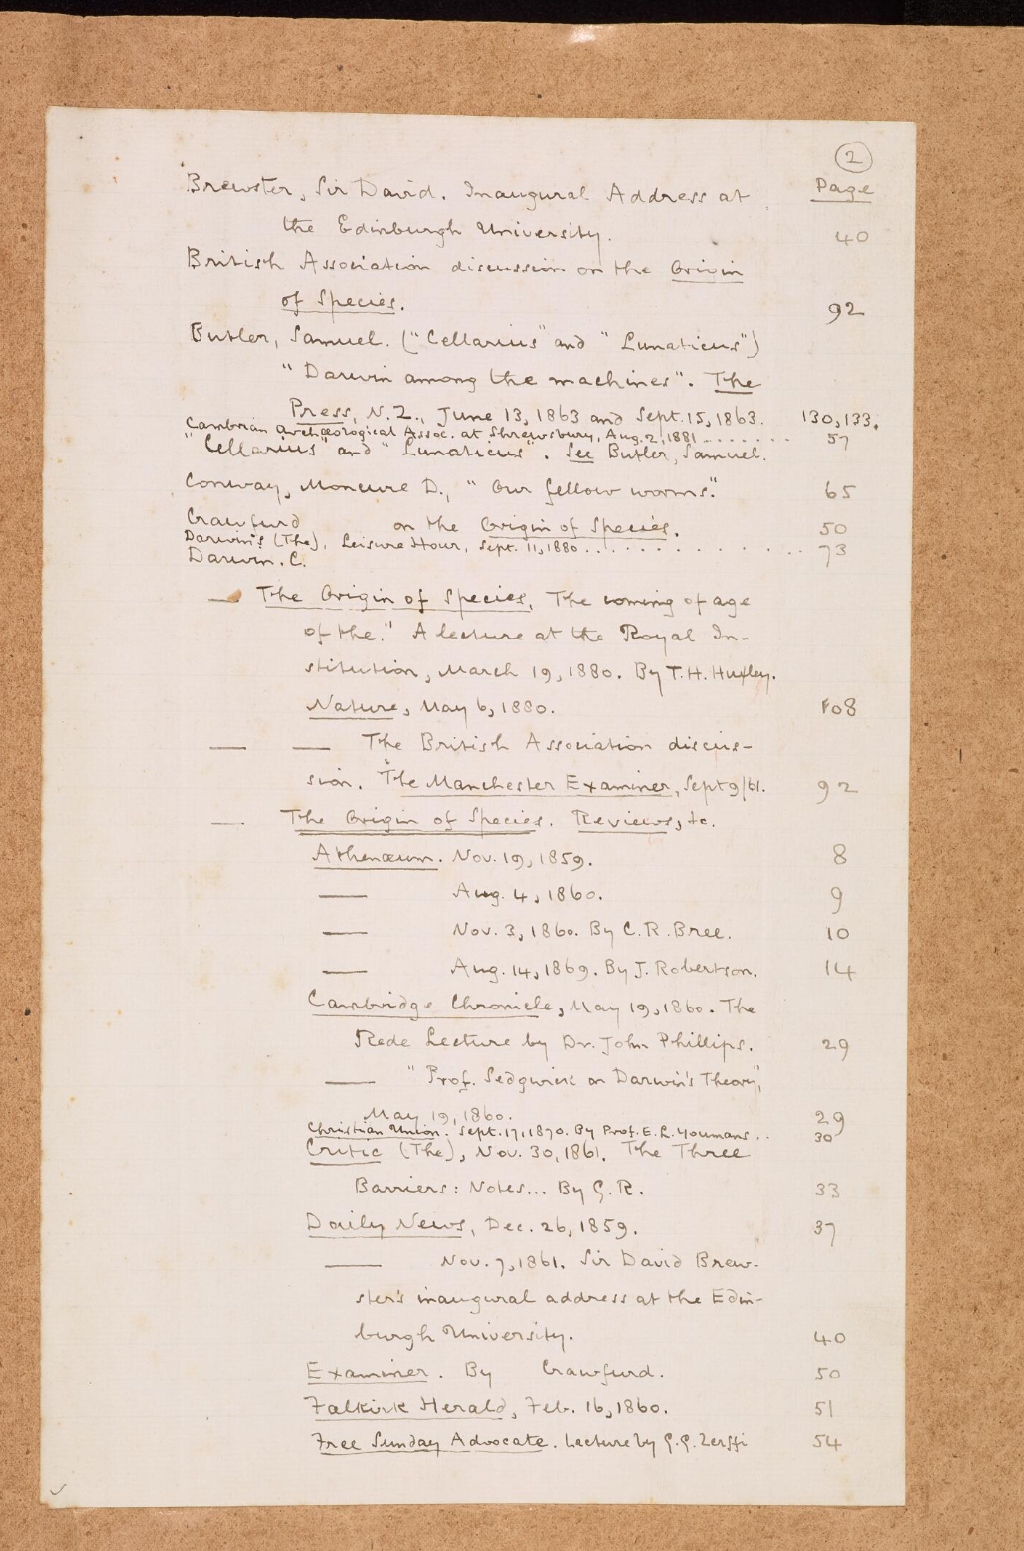 2
Page
Brewster, Sir David. Inaugural Address at
the Edinburgh University. 40
British Association discussion on the Origin
of Species. 92
Butler, Samuel. ("Cellarius" and "Lunaticus")
"Darwin among the machines". The
Press, N.Z., June 13, 1863 and Sept. 15, 1863. 130, 133.
Cambrian Archæological Assoc. at Shrewsbury, Aug. 2, 1881 ....... 57
"Cellarius" and "Lunaticus". See Butler, Samuel.
Conway, Moncure D., "Our fellow worms". 65
Crawfurd on the Origin of Species. 50
Darwin's (The), Leisure Hour, Sept. 11, 1880 .............. 73
Darwin. C.
— The Origin of Species, The coming of age
of the." A lecture at the Royal In-
stitution, March 19, 1880. By T. H. Huxley.
Nature, May 6, 1880. 108
— — The British Association discus-
sion. The Manchester Examiner, Sept 9/61. 92
— The Origin of Species. Reviews, &c.
Athenæum. Nov. 19, 1859. 8
— Aug. 4, 1860. 9
— Nov. 3, 1860. By C. R. Bree. 10
— Aug. 14, 1869. By J. Robertson. 14
Cambridge Chronicle, May 19, 1860. The
Rede Lecture by Dr. John Phillips. 29
— "Prof. Sedgwick on Darwin's Theory",
May 19, 1860. 29
Christian Union. Sept. 17, 1870. By Prof. E. L. Youmans .. 30
Critic (The), Nov. 30, 1861. The Three
Barriers: Notes... By G. R. 33
Daily News, Dec. 26, 1859. 37
— Nov. 7, 1861. Sir David Brew-
ster's inaugural address at the Edin-
burgh University. 40
Examiner. By Crawfurd. 50
Falkirk Herald, Feb. 16, 1860. 51
Free Sunday Advocate. Lecture by G. G. Zerffi 54